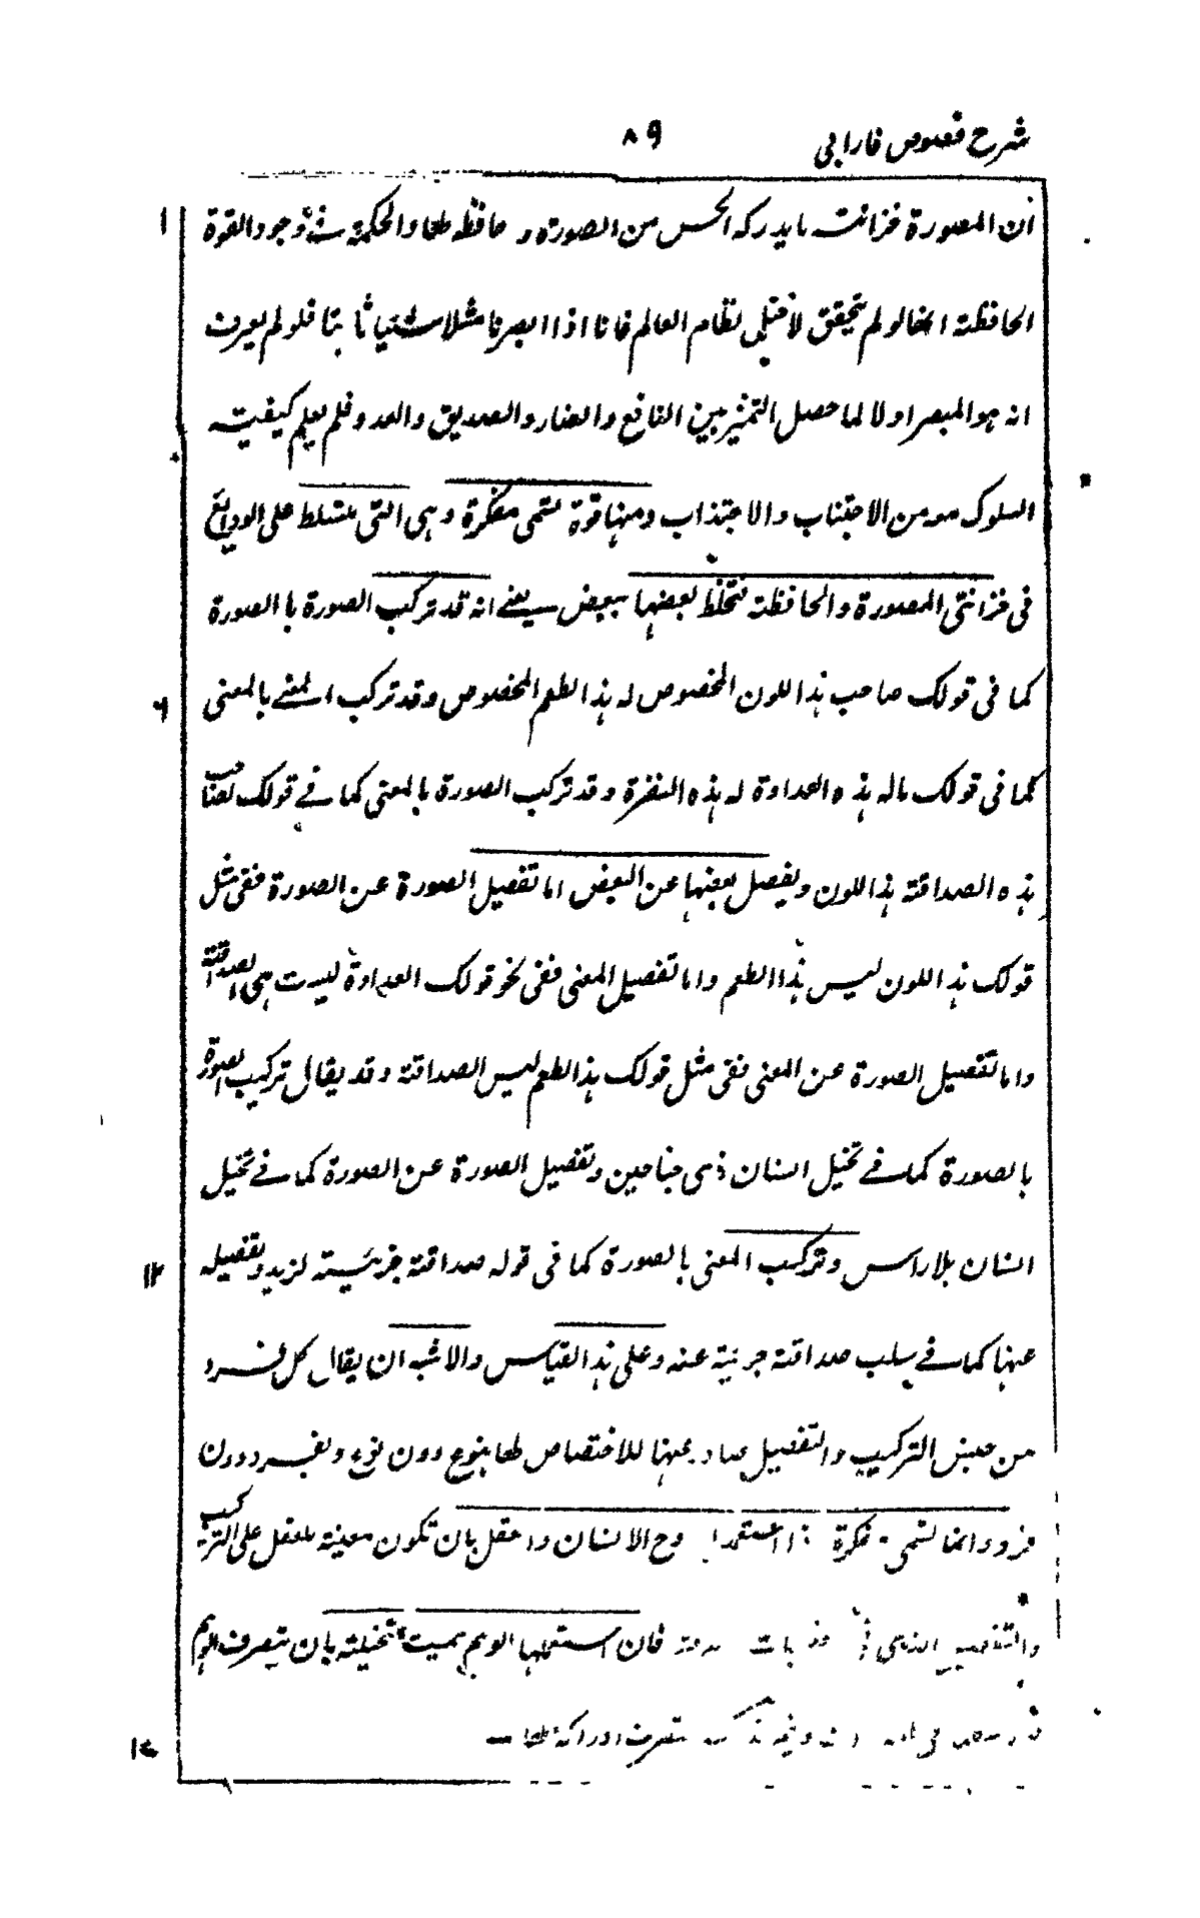 شرح فصوص فارابي
٨٩
١
أن المصورة خزانة ما يدركه الحس من الصورة و حافظة لها والحكمة في وجود القوة
الحافظة انها لو لم يتحقق لاختل نظام العالم فانا اذا ابصرنا مثلا شيئا ثانيا فلو لم يعرف
انه هو المبصر اولا لما حصل التميز بين النافع والضار والصديق والعدو فلم يعلم كيفية
السلوك معه من الاجتناب والاجتذاب ومنها قوة تسمى مفكرة وهى التى تتسلط على الودائع
فى خزانتى المصورة والحافظة فتخلط بعضها ببعض يعنے انه قد تركب الصورة بالصورة
٦
كما فى قولك صاحب هذا اللون المخصوص له هذا الطعم المخصوص وقد تركب المعنے بالمعنى
كما فى قولك ماله هذه العداوة له هذه النفرة وقد تركب الصورة بالمعنى كما فے قولك لصاحب
هذه الصداقة هذا اللون ويفصل بعضها عن البعض اما تفصيل الصورة عن الصورة ففى مثل
قولك هذا اللون ليس هذا الطعم واما تفصيل المعنى ففى نحو قولك العداوة ليست هى الصداقة
واما تفصيل الصورة عن المعنى ففى مثل قولك هذا الطعم ليس الصداقة وقد يقال تركيب الصورة
بالصورة كما فے تخيل انسان ذى جناحين وتفصيل الصورة عن الصورة كما فے تخيل
١٢
انسان بلا راس وتركيب المعنى بالصورة كما فى قوله صداقة جزئية لزيد وتفصيله
عنها كما فے سلب صداقة جزئية عنه وعلى هذا القياس والاشبه ان يقال كل فرد
من جنس التركيب والتفصيل صادر عنها للاختصاص لها بنوع دون نوع وبفرد دون
فرد وانما تسمى مفكرة اذا استعملها روح الانسان والعقل بان تكون معينة للعقل على التركيب
والتفصيل الذى فى فان استعملها الوهم سميت متخيلة بان يتصرف الوهم
تصرف ادراكه لها